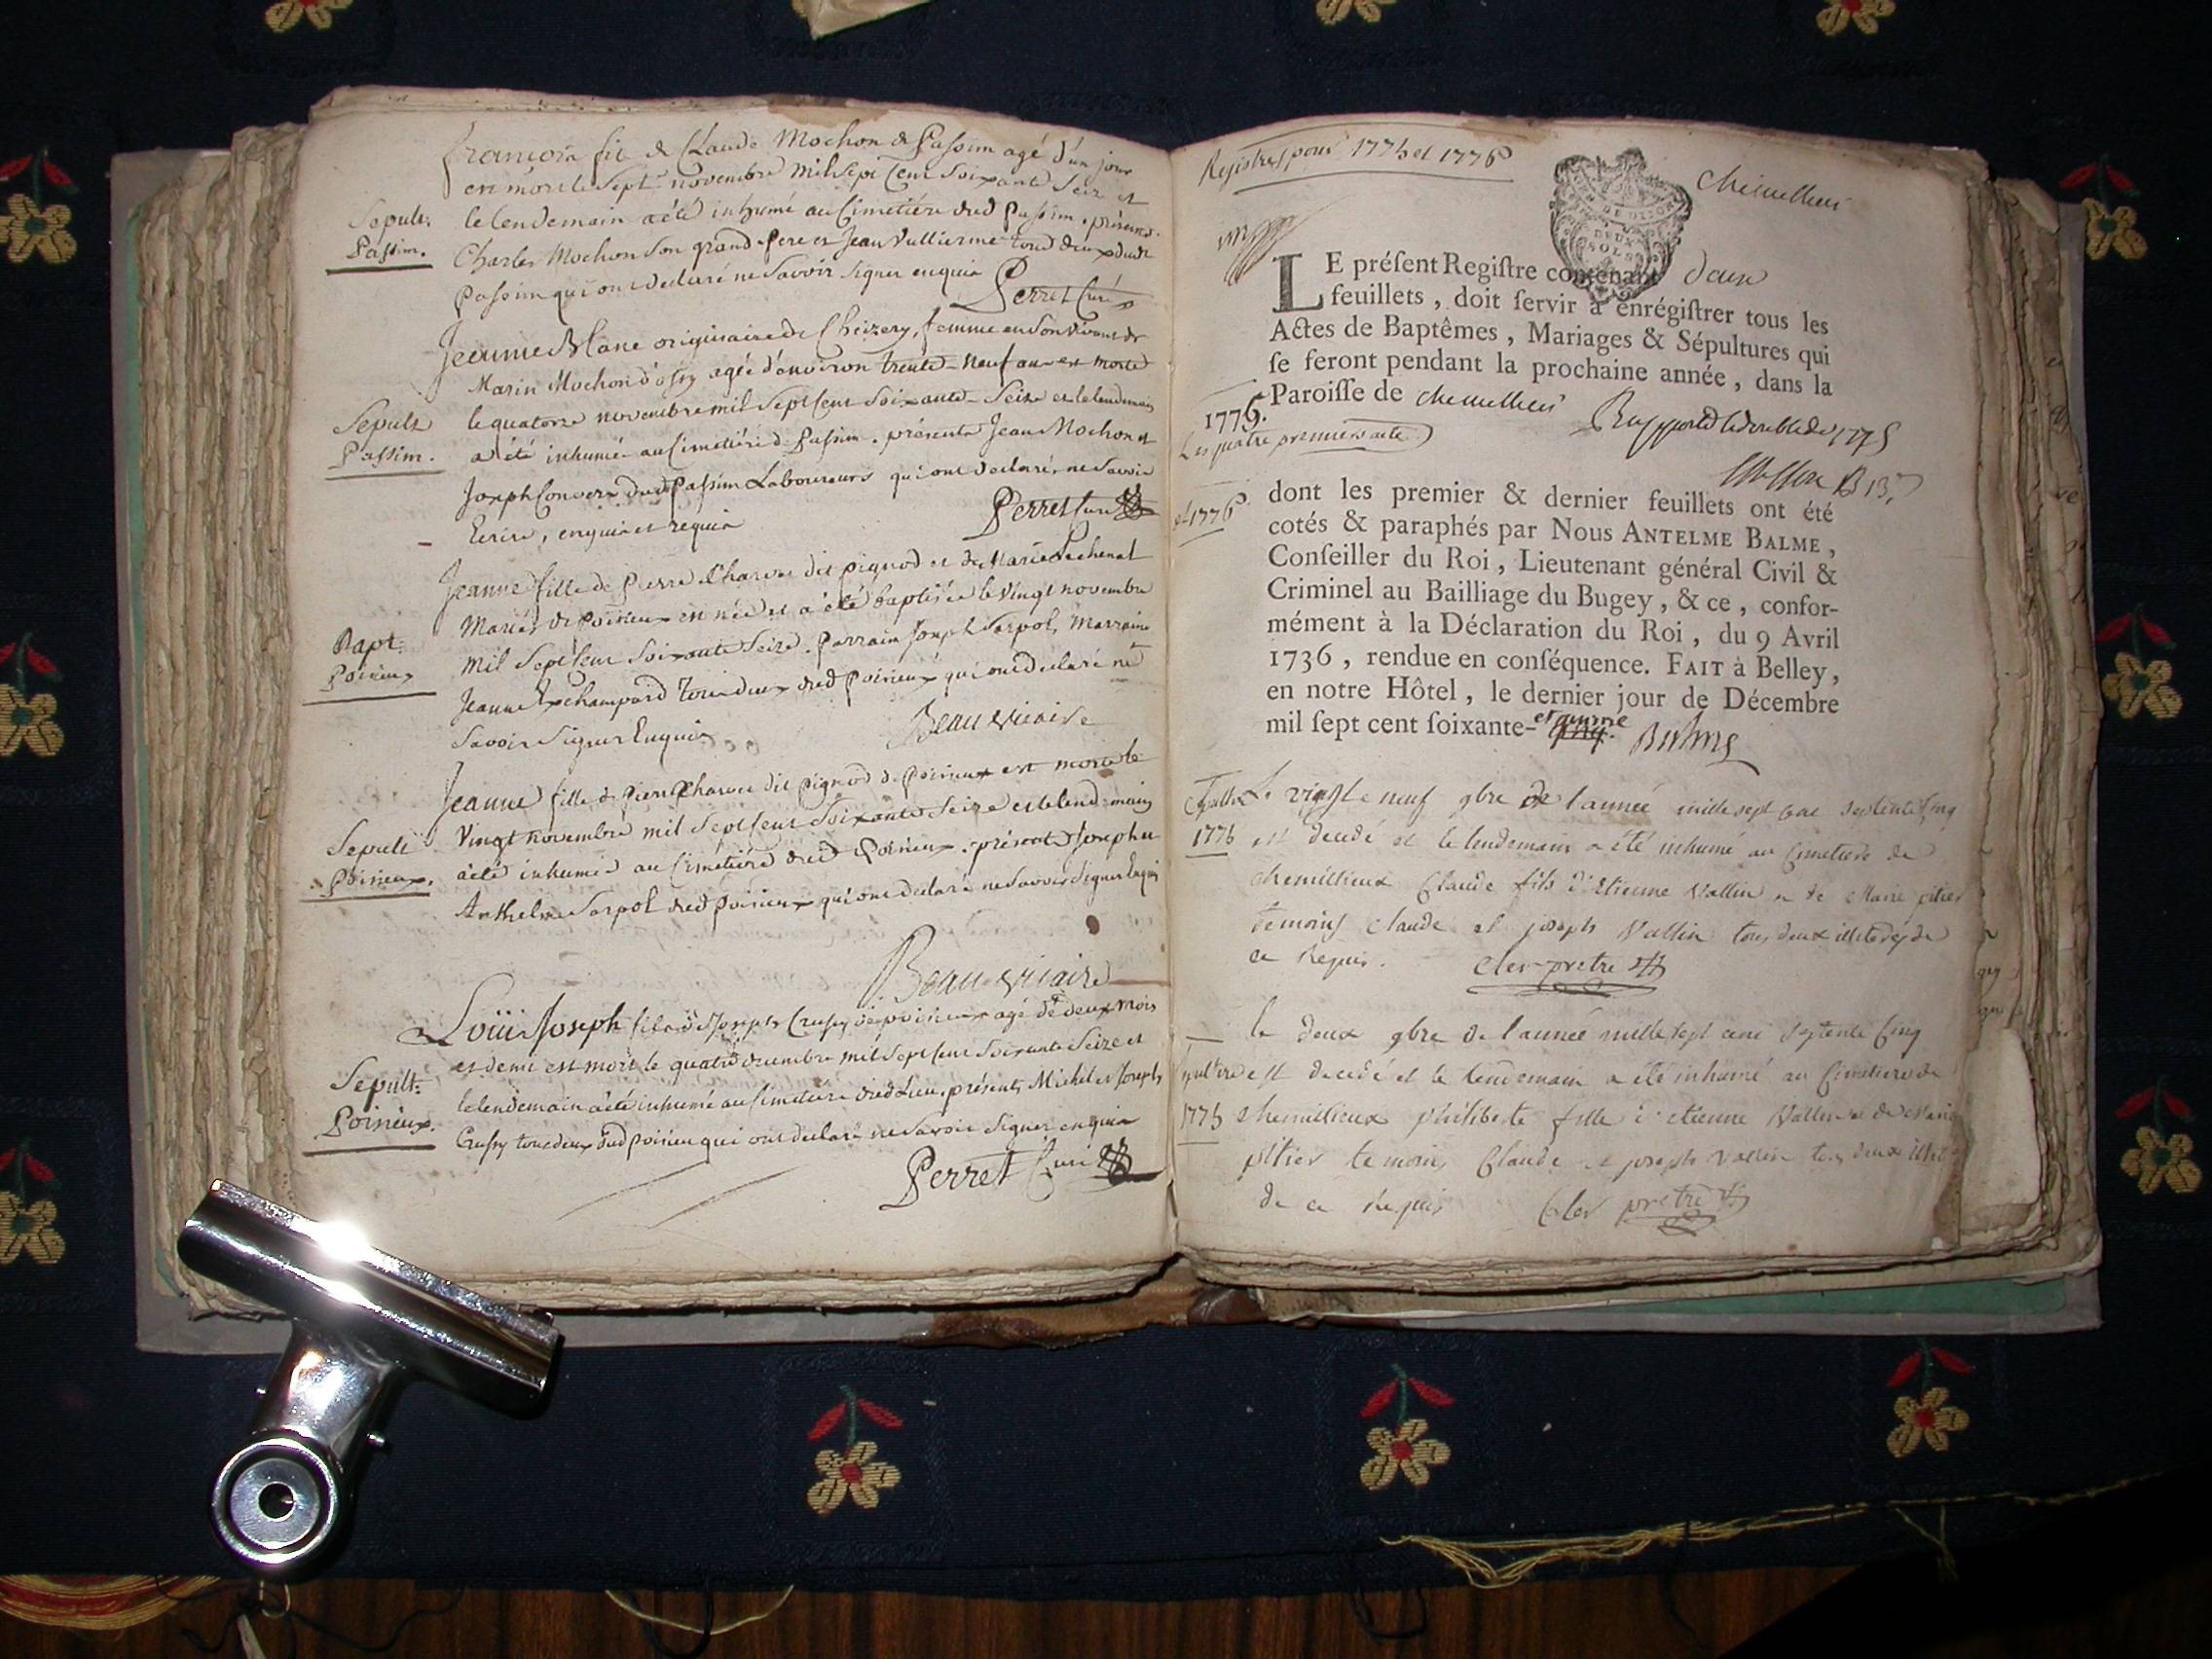 François fils de Claude Mochon de Passim agé d'un jour
est mort le sept novembre mil sept cent soixante seize et
le lendemain a été inhumé au Cimetière dud Passim. présens
Charles Mochon son grand pere et Jean Vullierme tous deux dudt
Passim qui ont declaré ne savoir signer enquis
Perret Curé
Sepult.
Passim.
Jeanne Blanc originaire de Cheizery, femme en son vivant de
Marin Mochon d'ossy agée d'environ trente-neuf ans est morte
le quatorze novembre mil sept cent soixante-seize et le lendemain
a été inhumée au Cimetière de Passim. présents Jean Mochon et
Joseph Convers dud Passim Laboureurs qui ont declarés ne savoir
Ecrire, enquis et requis
Perret Curé
Sepult
Passim.
Jeanne fille de Pierre Charvet dit pignod et de Marie
Mariés de Poirieux est née et a été baptisée le vingt novembre
mil sept cent soixante seize. Parrain Joseph Sarpol, Marraine
Jeanne tous deux dud Poirieux qui ont declaré ne
savoir signer Enquis
Beau vicaire
Bapt.
Poirieux
Jeanne fille de Pierre Charvet dit pignod de Poirieux est morte le
vingt novembre mil sept cent soixante seize et le lendemain
a été inhumée au Cimetière dud Poirieux. présents Joseph et
Anthelme Sarpol dud Poirieux qui ont declaré ne savoir signer Enquis
Beau vicaire
Sepult
Poirieux.
Loüis Joseph fils de Joseph Crussy de poirieux agé de deux mois
et demi est mort le quatre decembre mil sept cent soixante seize et
le lendemain a été inhumé au Cimetière dud Lieu, présents Michel et Joseph
Crussy tous deux dud poirieu qui ont declaré ne savoir signer enquis
Perret Curé
Sepult.
Poirieux.
Registres pour 1775 et 1776
DE DIJON
DEUX
SOLS
LE préſent Regiſtre contenant deux
feuillets, doit ſervir à enrégiſtrer tous les
Actes de Baptêmes, Mariages & Sépultures qui
ſe feront pendant la prochaine année, dans la
Paroiſſe de chemillieu
1775.
Les quatre premiers acte
Rapporté le double de 1775
et 1776
dont les premier & dernier feuillets ont été
cotés & paraphés par Nous ANTELME BALME,
Conſeiller du Roi, Lieutenant général Civil &
Criminel au Bailliage du Bugey, & ce, confor-
mément à la Déclaration du Roi, du 9 Avril
1736, rendue en conſéquence. FAIT à Belley,
en notre Hôtel, le dernier jour de Décembre
mil ſept cent ſoixante- et quinze Balme
Le vingt neuf 9bre de l'année mille sept cent septente Cinq
1775 est decedé et le lendemain a été inhumé au Cimetiere de
chemillieux Claude fils d'Etienne Vallin et de Marie pitier
temoins Claude et joseph Vallin tous deux illiterés de
ce Requis. Cler pretre
le deux 9bre de l'année mille sept cent septente Cinq
est decedé et le lendemain a été inhumé au Cimetiere de
1775 chemillieux philiberte fille d'etienne Vallin et de Marie
pitier temoins Claude et joseph Vallin tous deux
de ce Requis Cler pretre